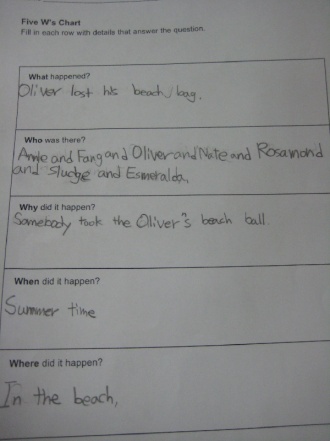 Five W's Chart
Fill in each row with details that answer the question.
What happened?
Oliver lost his beach bag.
Who was there?
Annie and Fang and Oliver and Nate and Rosamond
and Sludge and Esmeralda.
Why did it happen?
Somebody took the Oliver's beach ball.
When did it happen?
Summer time
Where did it happen?
In the beach,